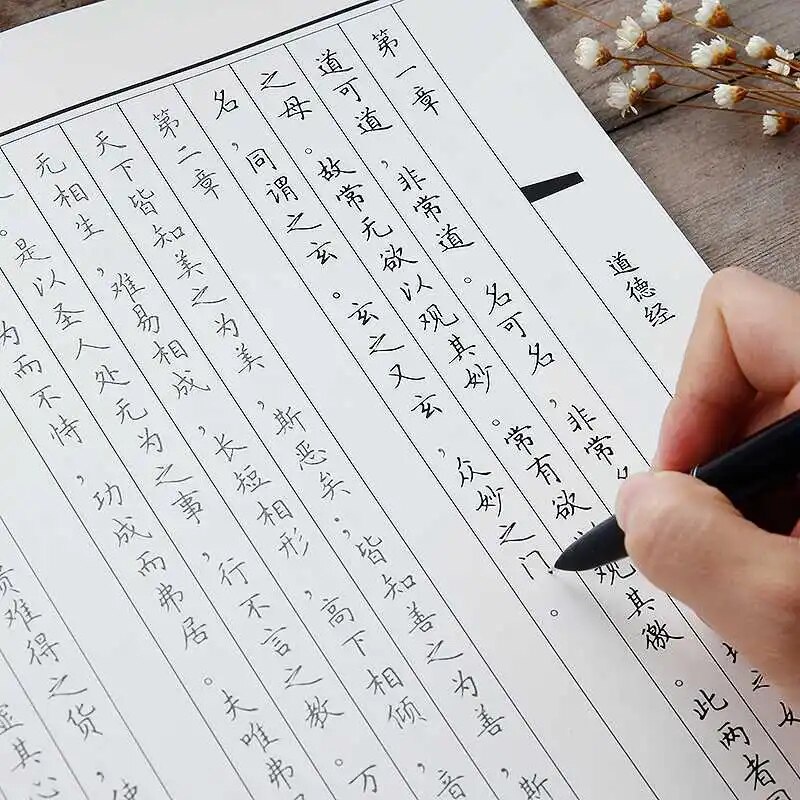 道德经
第一章
道可道，非常道。名可名，非常
之母。故常无欲以观其妙。常有欲观其徼。此两者
名，同谓之玄。玄之又玄，众妙之门。
第二章
天下皆知美之为美，斯恶矣；皆知善之为善，斯
无相生，难易相成，长短相形，高下相倾，音
。是以圣人处无为之事，行不言之教。万
为而不恃，功成而弗居。夫唯弗
贵难得之货，使
虚其心